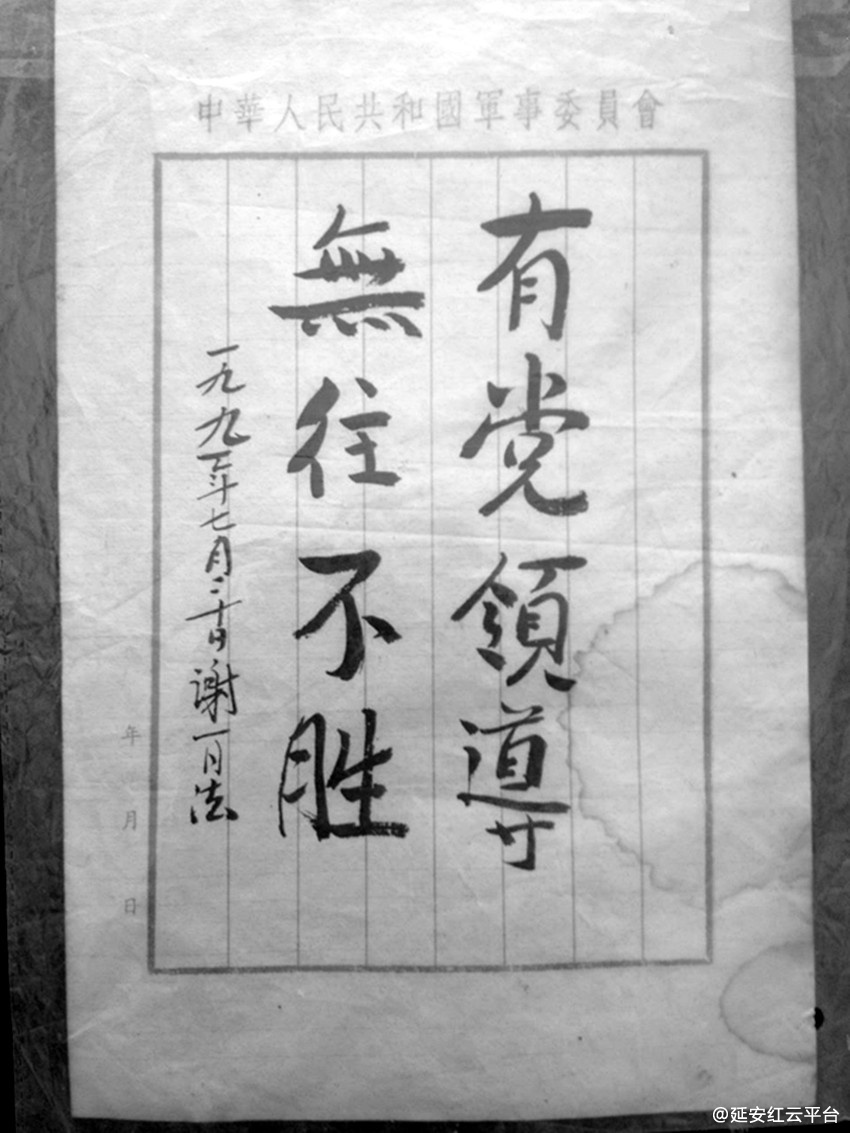 中華人民共和國軍事委員會
有党領導
無往不胜
一九九一年七月二十日 谢有法
年 月 日
@延安红云平台